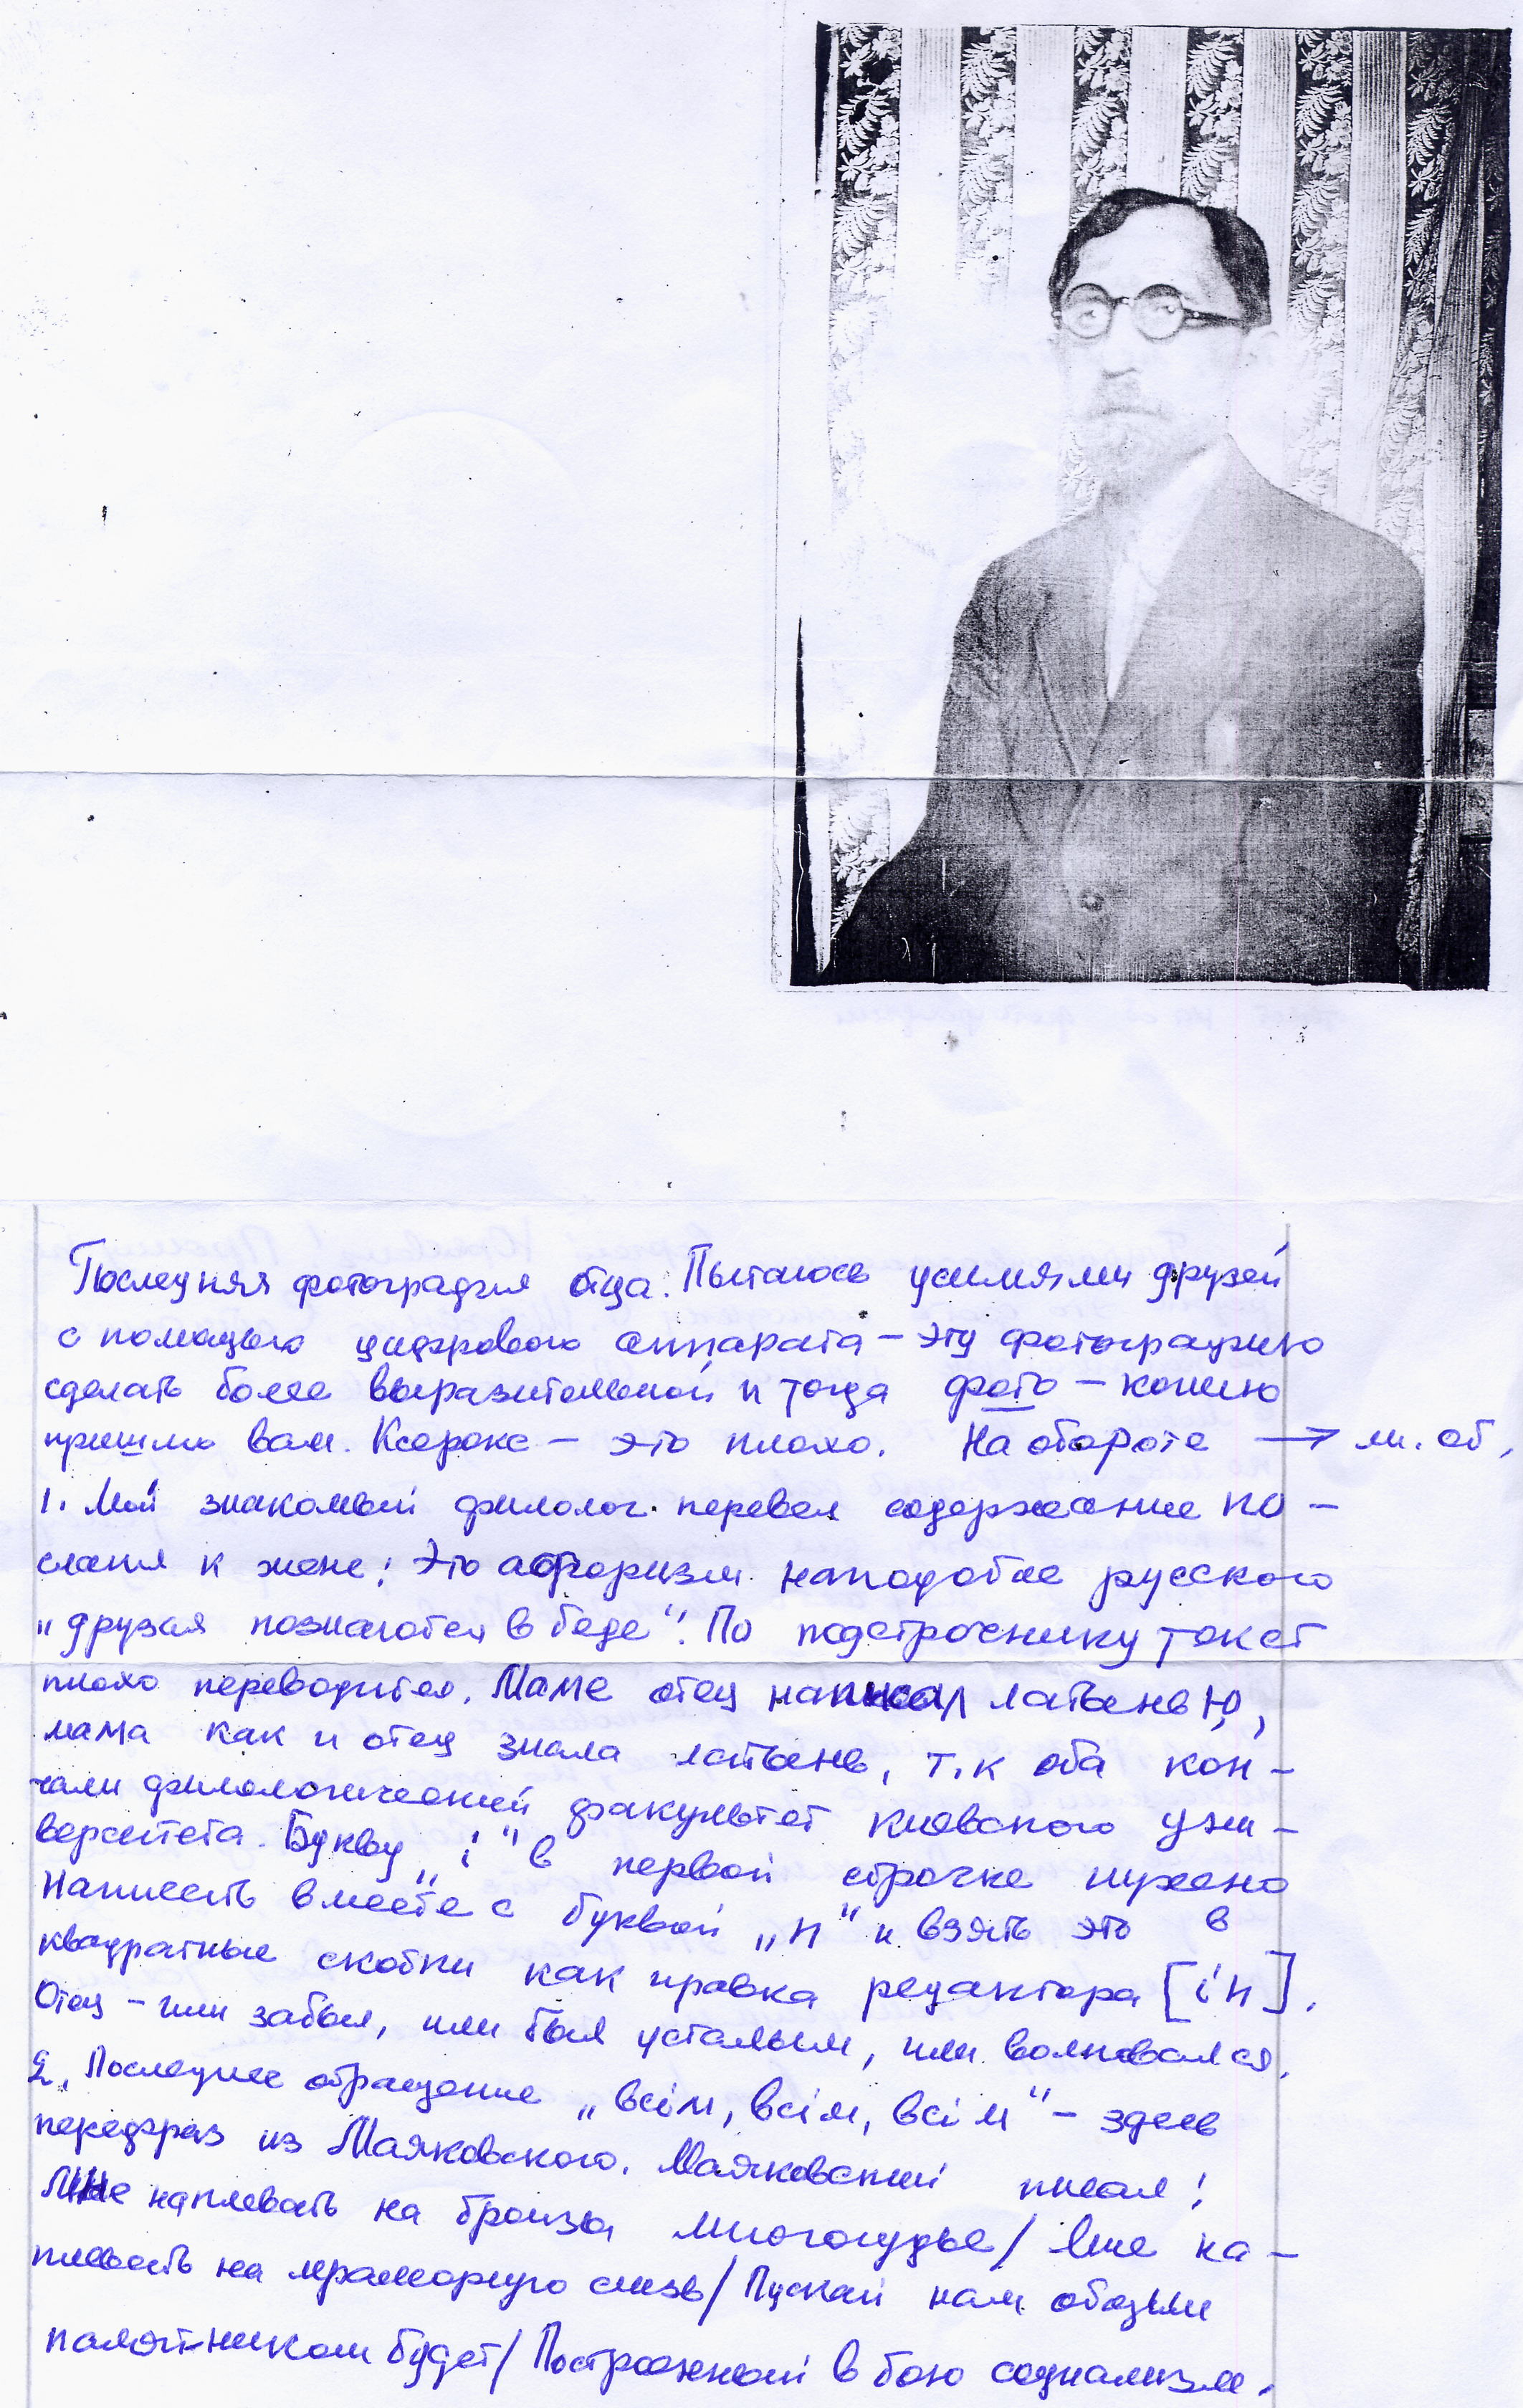 Последняя фотография отца. Пытаюсь усилиями друзей
с помощью цифрового аппарата – эту фотографию
сделать более выразительной и тогда фото – копию
пришлю вам. Ксерокс – это плохо. На обороте → см. об.
1. Мой знакомый филолог перевел содержание по–
слания к жене: Это афоризм наподобие русского
„друзья познаются в беде“. По подстрочнику текст
плохо переводится. Маме отец написал латынью,
мама как и отец знала латынь, т.к оба кон–
чали филологический факультет киевского уни–
верситета. Букву „і“ в первой строчке нужно
написать вместе с буквой „н“ и взять это в
квадратные скобки как правка редактора [ін].
Отец – или забыл, или был усталым, или волновался.
2. Последнее обращение „всім, всім, всім“ – здесь
перефраз из Маяковского. Маяковский писал:
Мне наплевать на бронзы многопудье / Мне на–
плевать на мраморную слизь / Пускай нам общим
памятником будет / Построенный в бою социализм.